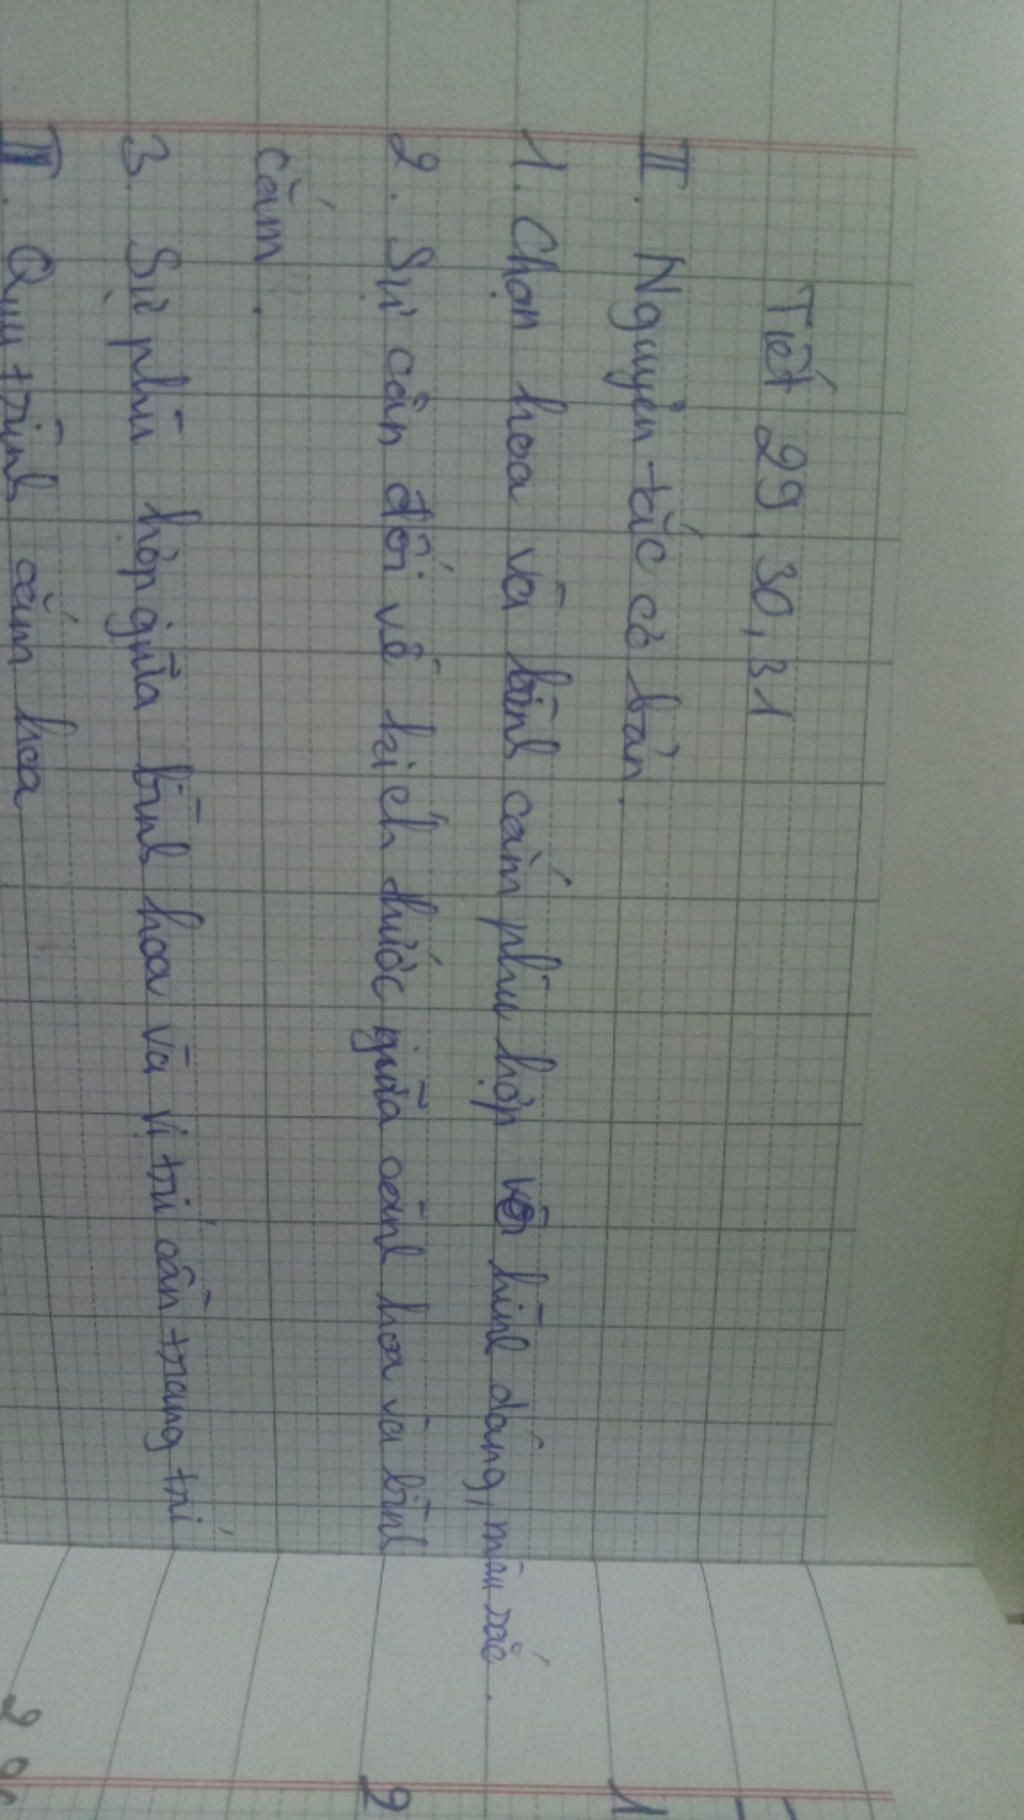 Tiết 29, 30, 31
II. Nguyên tắc cơ bản.
1. Chọn hoa và bình cắm phù hợp với hình dáng, màu sắc.
2. Sự cân đối về kích thước giữa cành hoa và bình
cắm.
3. Sự phù hợp giữa bình hoa và vị trí cần trang trí
III. Quy trình cắm hoa
1
2
2